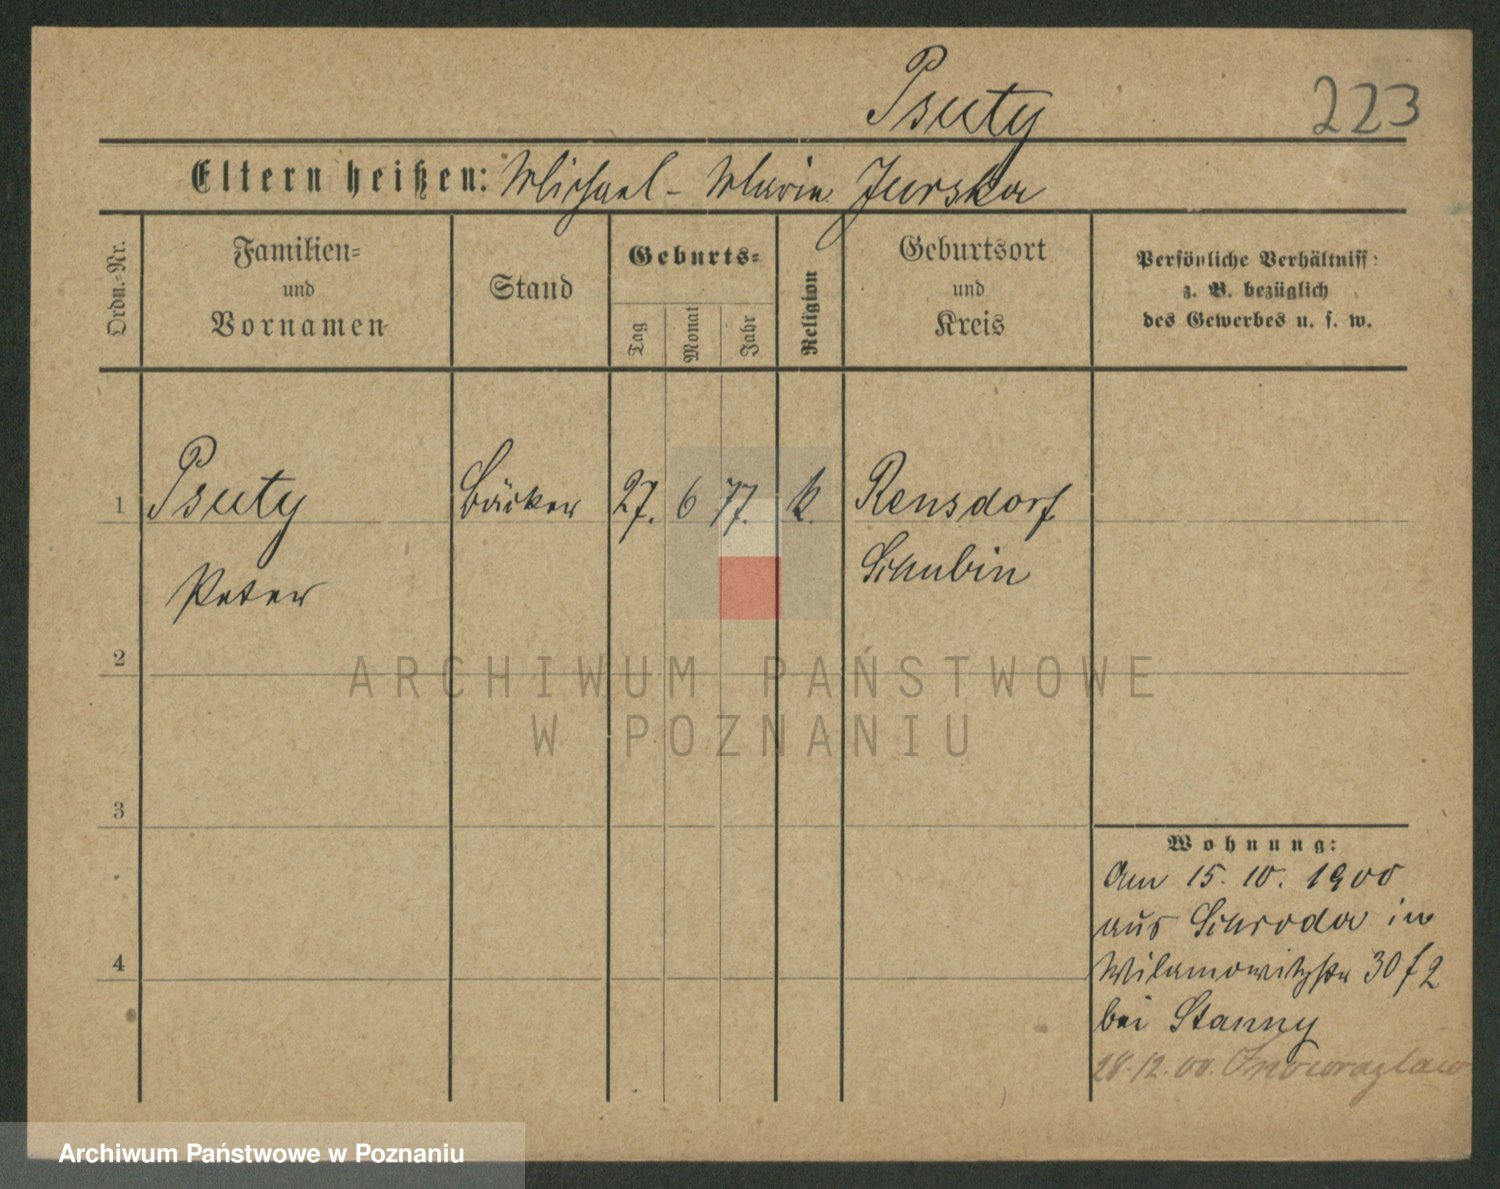 Psuty
223
Eltern heißen: Michael - Maria Jurska
Ordn.-Nr.
Familien-
und
Vornamen
Stand
Geburts-
Tag
Monat
Jahr
Religion
Geburtsort
und
Kreis
Persönliche Verhältniss:
z. B. bezüglich
des Gewerbes u. s. w.
1 Psuty Bäcker 27. 6 77. k. Rensdorf
Schubin
Peter
2
3
4
Wohnung:
Am 15. 10. 1900
aus Schroda in
Wilamowitzstr 30 f 2
bei Stanny
28.12.00. Inowrazlaw
ARCHIWUM PAŃSTWOWE
W POZNANIU
Archiwum Państwowe w Poznaniu